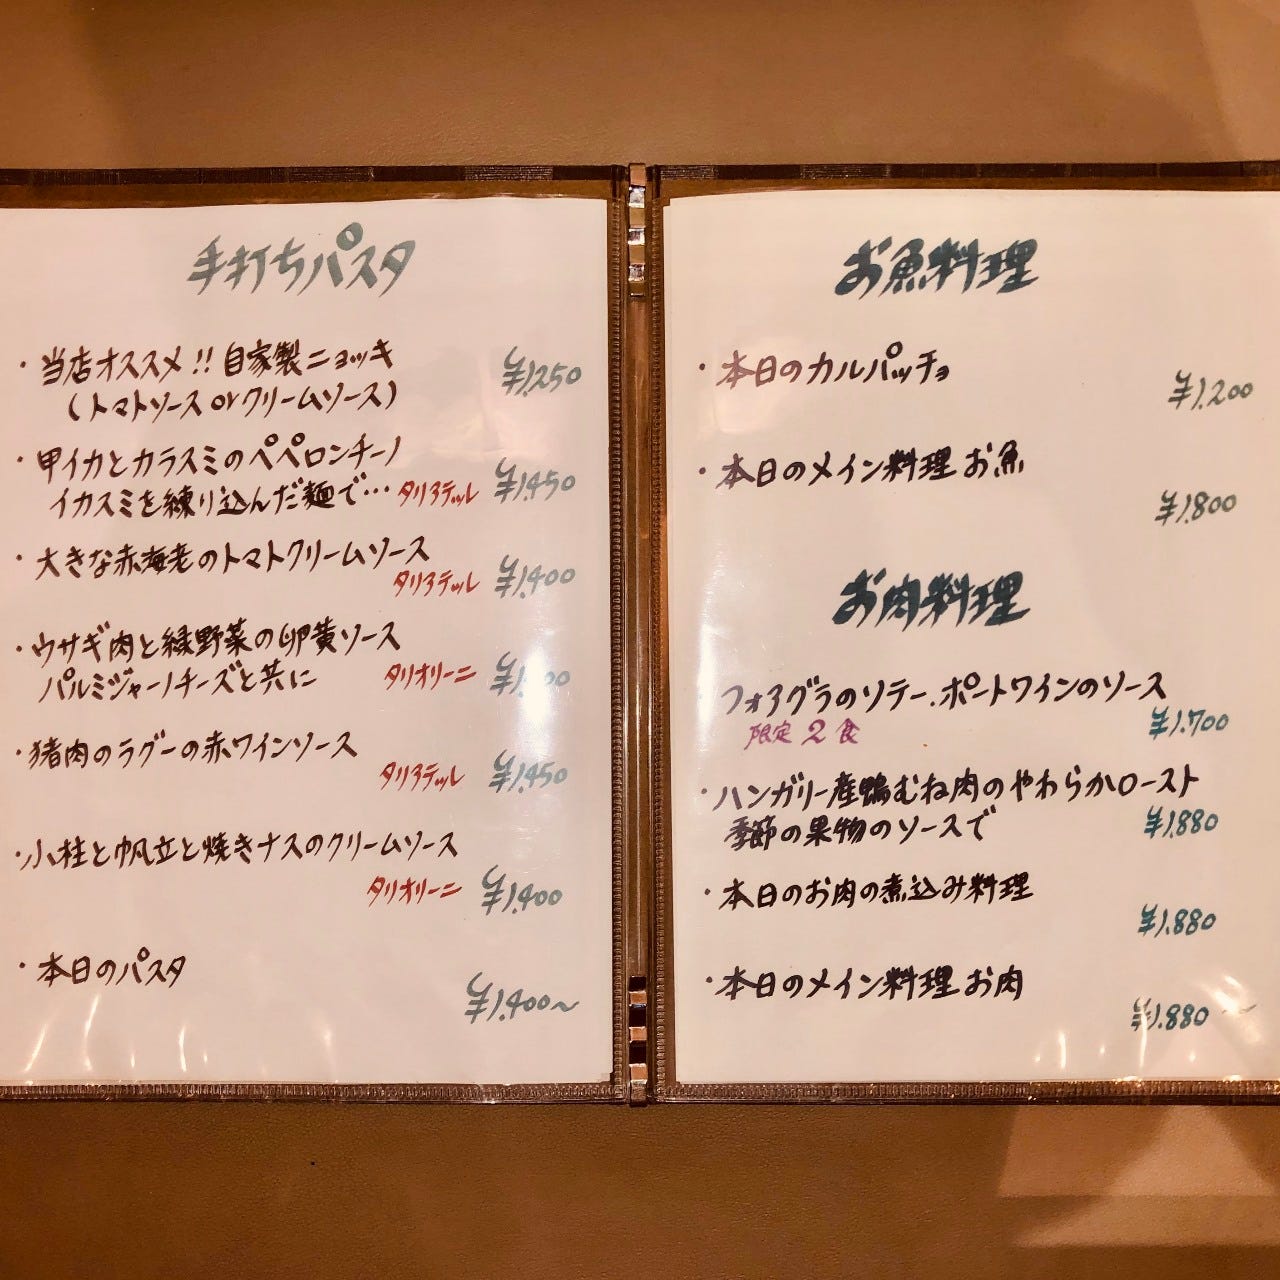 手打ちパスタ
・当店オススメ!! 自家製ニョッキ
(トマトソース or クリームソース) ¥1.250
・甲イカとカラスミのペペロンチーノ
イカスミを練り込んだ麺で… タリアテッレ ¥1.450
・大きな赤海老のトマトクリームソース
タリアテッレ ¥1.400
・ウサギ肉と緑野菜の卵黄ソース
パルミジャーノチーズと共に タリオリーニ
・猪肉のラグーの赤ワインソース
タリアテッレ ¥1.450
・小柱と帆立と焼きナスのクリームソース
タリオリーニ ¥1.400
・本日のパスタ
¥1.400〜
お魚料理
・本日のカルパッチョ
¥1.200
・本日のメイン料理 お魚
¥1.800
お肉料理
・フォアグラのソテー.ポートワインのソース
限定 2食 ¥1.700
・ハンガリー産鴨むね肉のやわらかロースト
季節の果物のソースで ¥1.880
・本日のお肉の煮込み料理
¥1.880
・本日のメイン料理 お肉
¥1.880〜